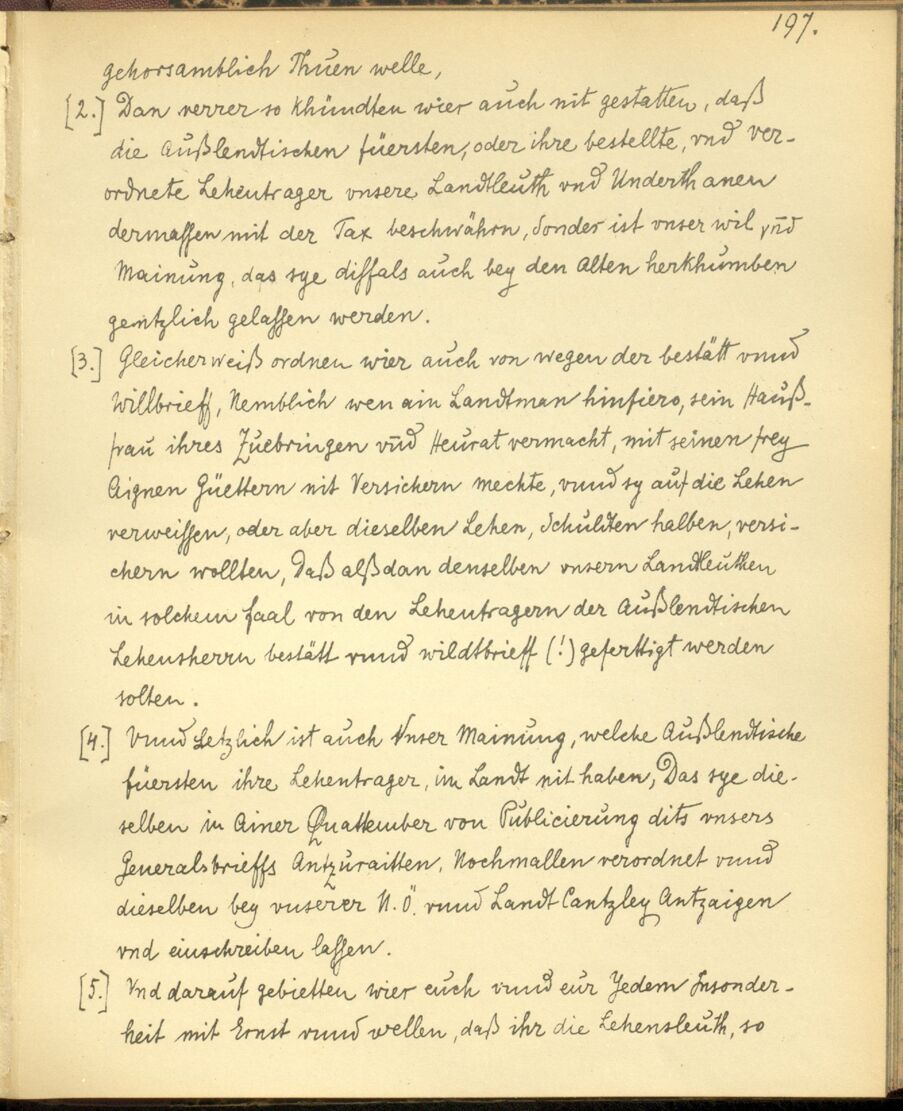 197.
gehorsamblich Thuen welle,
[2.] Dan verrer so khündten wier auch nit gestatten, daß
die Außlendtischen füersten, oder ihre bestellte, vnd ver-
ordnete Lehentrager vnsere Landtleuth vnd Underthanen
dermassen mit der Tax beschwährn, Sonder ist vnser wil vnd
Mainung, das sye dissfals auch bey den Alten herkhumben
gentzlich gelassen werden.
[3.] Gleicherweiß ordnen wier auch von wegen der bestätt vnnd
Willbrieff, Nemblich wen ain Landtman hinfiero, sein Hauß-
frau ihres Zuebringen vnd Heurat vermacht, mit seinen frey
Aignen Güettern nit Versichern mechte, vnnd sy auf die Lehen
verweissen, oder aber dieselben Lehen, Schuldten halben, versi-
chern wollten, Daß alßdan denselben vnsern Landtleuthen
in solchem faal von den Lehentragern der Außlendtischen
Lehensherrn bestätt vnnd wildtbrieff (!) geferttigt werden
solten.
[4.] Vnnd Letzlich ist auch Vnser Mainung, welche Außlendtische
füersten ihre Lehentrager, im Landt nit haben, Das sye die-
selben in Ainer Quattember von Publicierung dits vnsers
Generalsbrieffs Antzuraitten, Nochmallen verordnet vnnd
dieselben bey vnserer N.Ö. vnnd Landt Cantzley Antzaigen
vnd einschreiben lassen.
[5.] Vnd darauf gebietten wier euch vnnd eur Jedem Insonder-
heit mit Ernst vnnd wellen, daß ihr die Lehensleuth, so